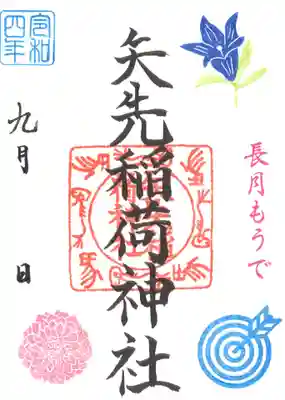 長月もうで
矢先稲荷神社
令和
四年
九月 日